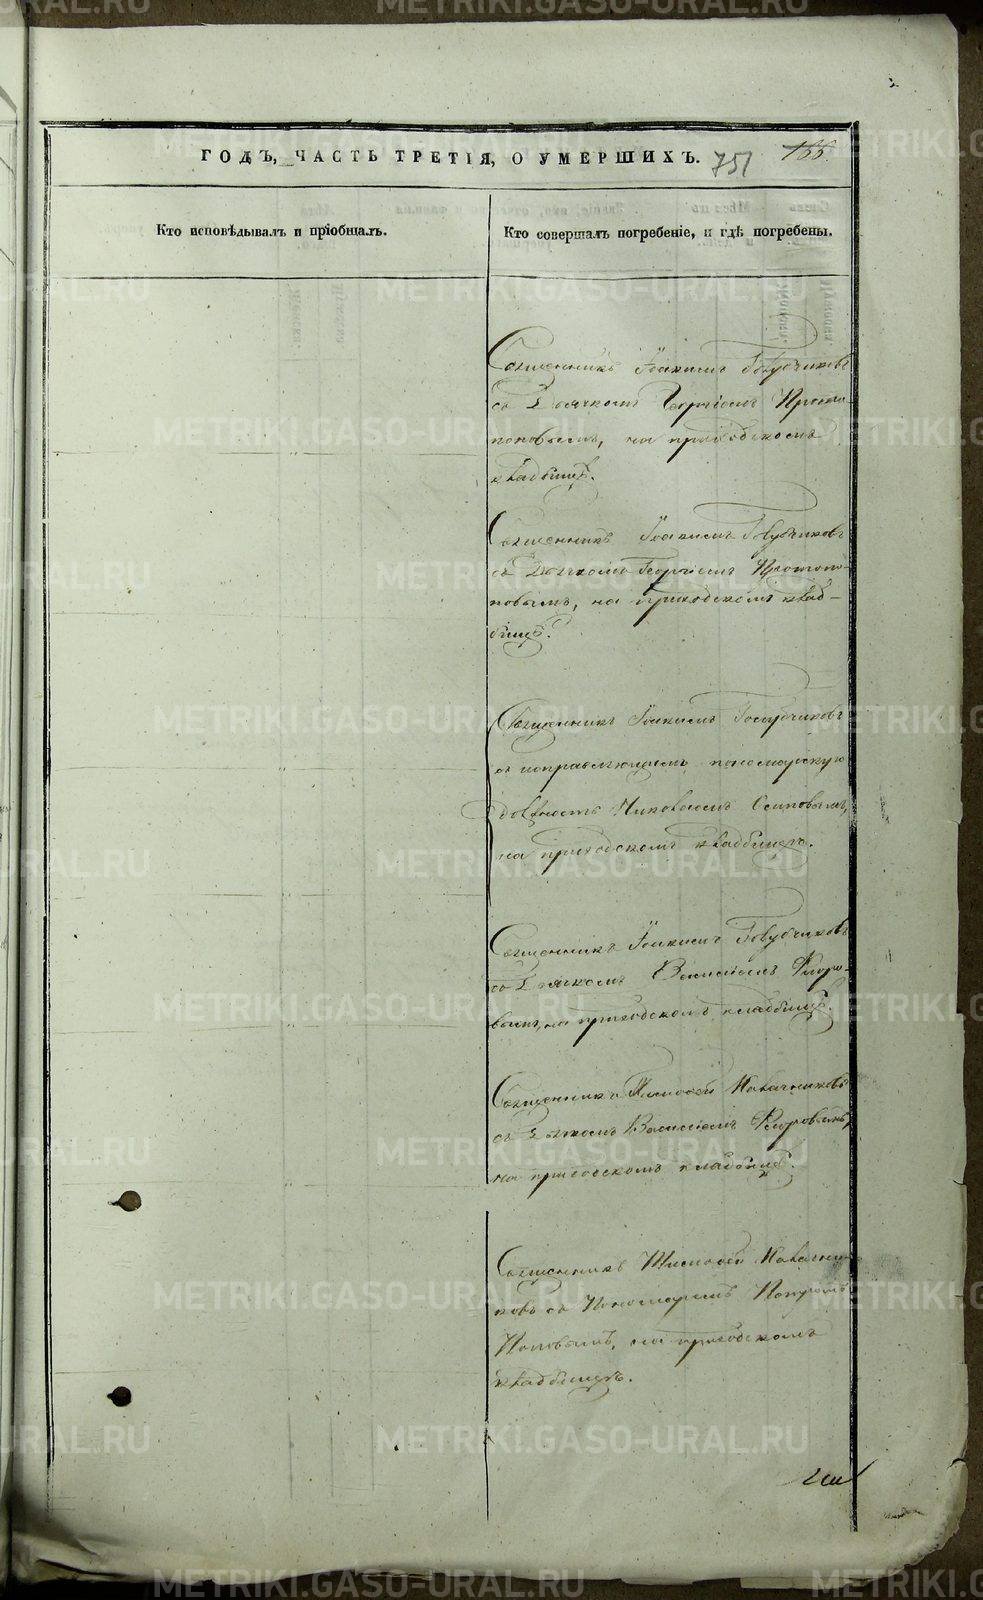 METRIKI.GASO-URAL.RU
ГОДЪ, ЧАСТЬ ТРЕТІЯ, О УМЕРШИХЪ. 751 155.
Кто исповѣдывалъ и пріобщалъ.
Кто совершалъ погребеніе, и гдѣ погребены.
Священникъ Іоакимъ Голубчиковъ
съ Дьячкомъ Георгіемъ Прото-
поповымъ, на приходскомъ
кладбищѣ.
Священникъ Іоакимъ Голубчиковъ
съ Дьячкомъ Георгіемъ Протопо-
повымъ, на приходскомъ клад-
бищѣ.
Священникъ Іоакимъ Голубчиковъ
съ исправляющимъ пономарскую
должность Николаемъ Осиповымъ,
на приходскомъ кладбищѣ.
Священникъ Іоакимъ Голубчиковъ
съ Дьячкомъ Василіемъ Флоро-
вымъ, на приходскомъ кладбищѣ.
Священникъ Тимофей
съ Дьячкомъ Василіемъ Флоровымъ,
на приходскомъ кладбищѣ.
Священникъ Тимофей
ковъ съ Пономаремъ Петромъ
Поповымъ, на приходскомъ
кладбищѣ.